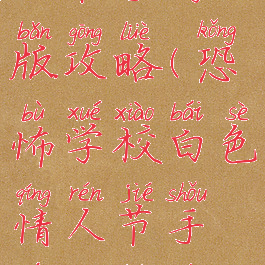 bǎn gōng lüè kǒng
版攻略(恐
bù xué xiào bái sè
怖学校白色
qíng rén jié shǒu
情人节手